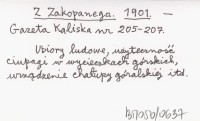 Z Zakopanego. 1901. —
Gazeta Kaliska nr. 205-207.
Ubiory ludowe, użyteczność
ciupagi w wycieczkach górskich,
urządzenie chałupy góralskiej itd.